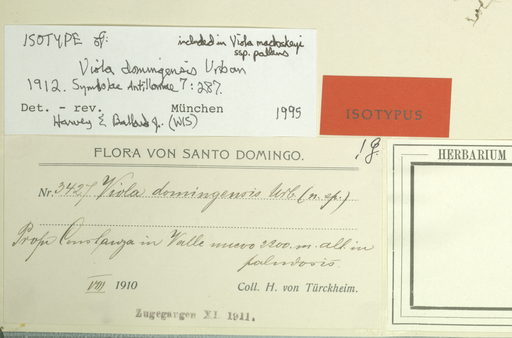 ISOTYPE of:
included in Viola macloskeyi
ssp. pallens
Viola domingensis Urban
1912. Symbolae Antillanae 7: 287.
Det. - rev. München 1995
Harvey E. Ballard Jr. (WIS)
ISOTYPUS
FLORA VON SANTO DOMINGO.
Nr. 3427 Viola domingensis Urb (n. sp.)
Prope Constanza in Valle nuevo 2200 m. alt. in
paludosis.
VIII 1910 Coll. H. von Türckheim.
Zugegangen XI. 1911.
HERBARIUM